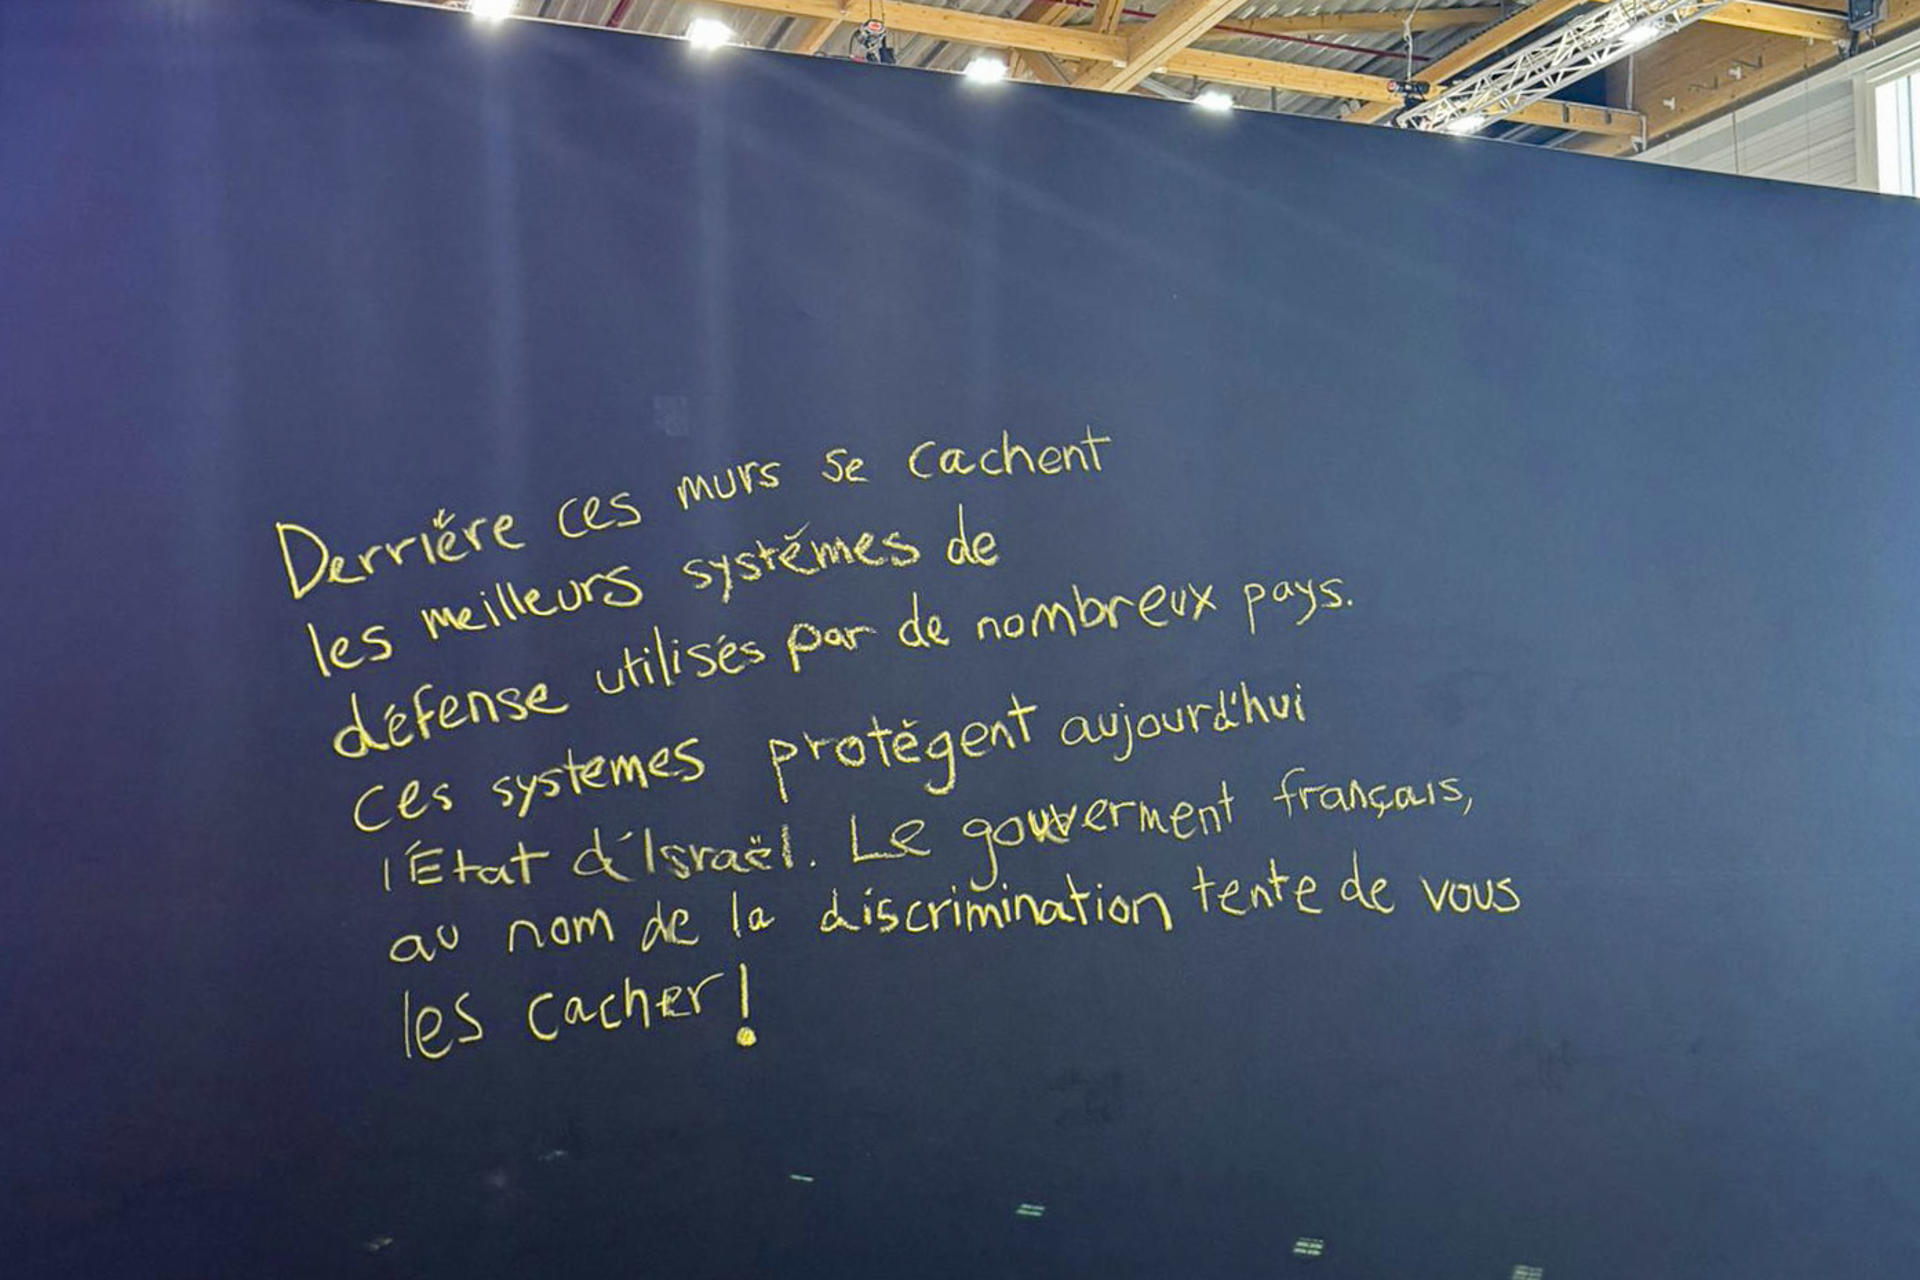 Derrière ces murs se cachent
les meilleurs systèmes de
défense utilisés par de nombreux pays.
Ces systemes protègent aujourd'hui
l'État d'Israël. Le gouverment français,
au nom de la discrimination tente de vous
les cacher!